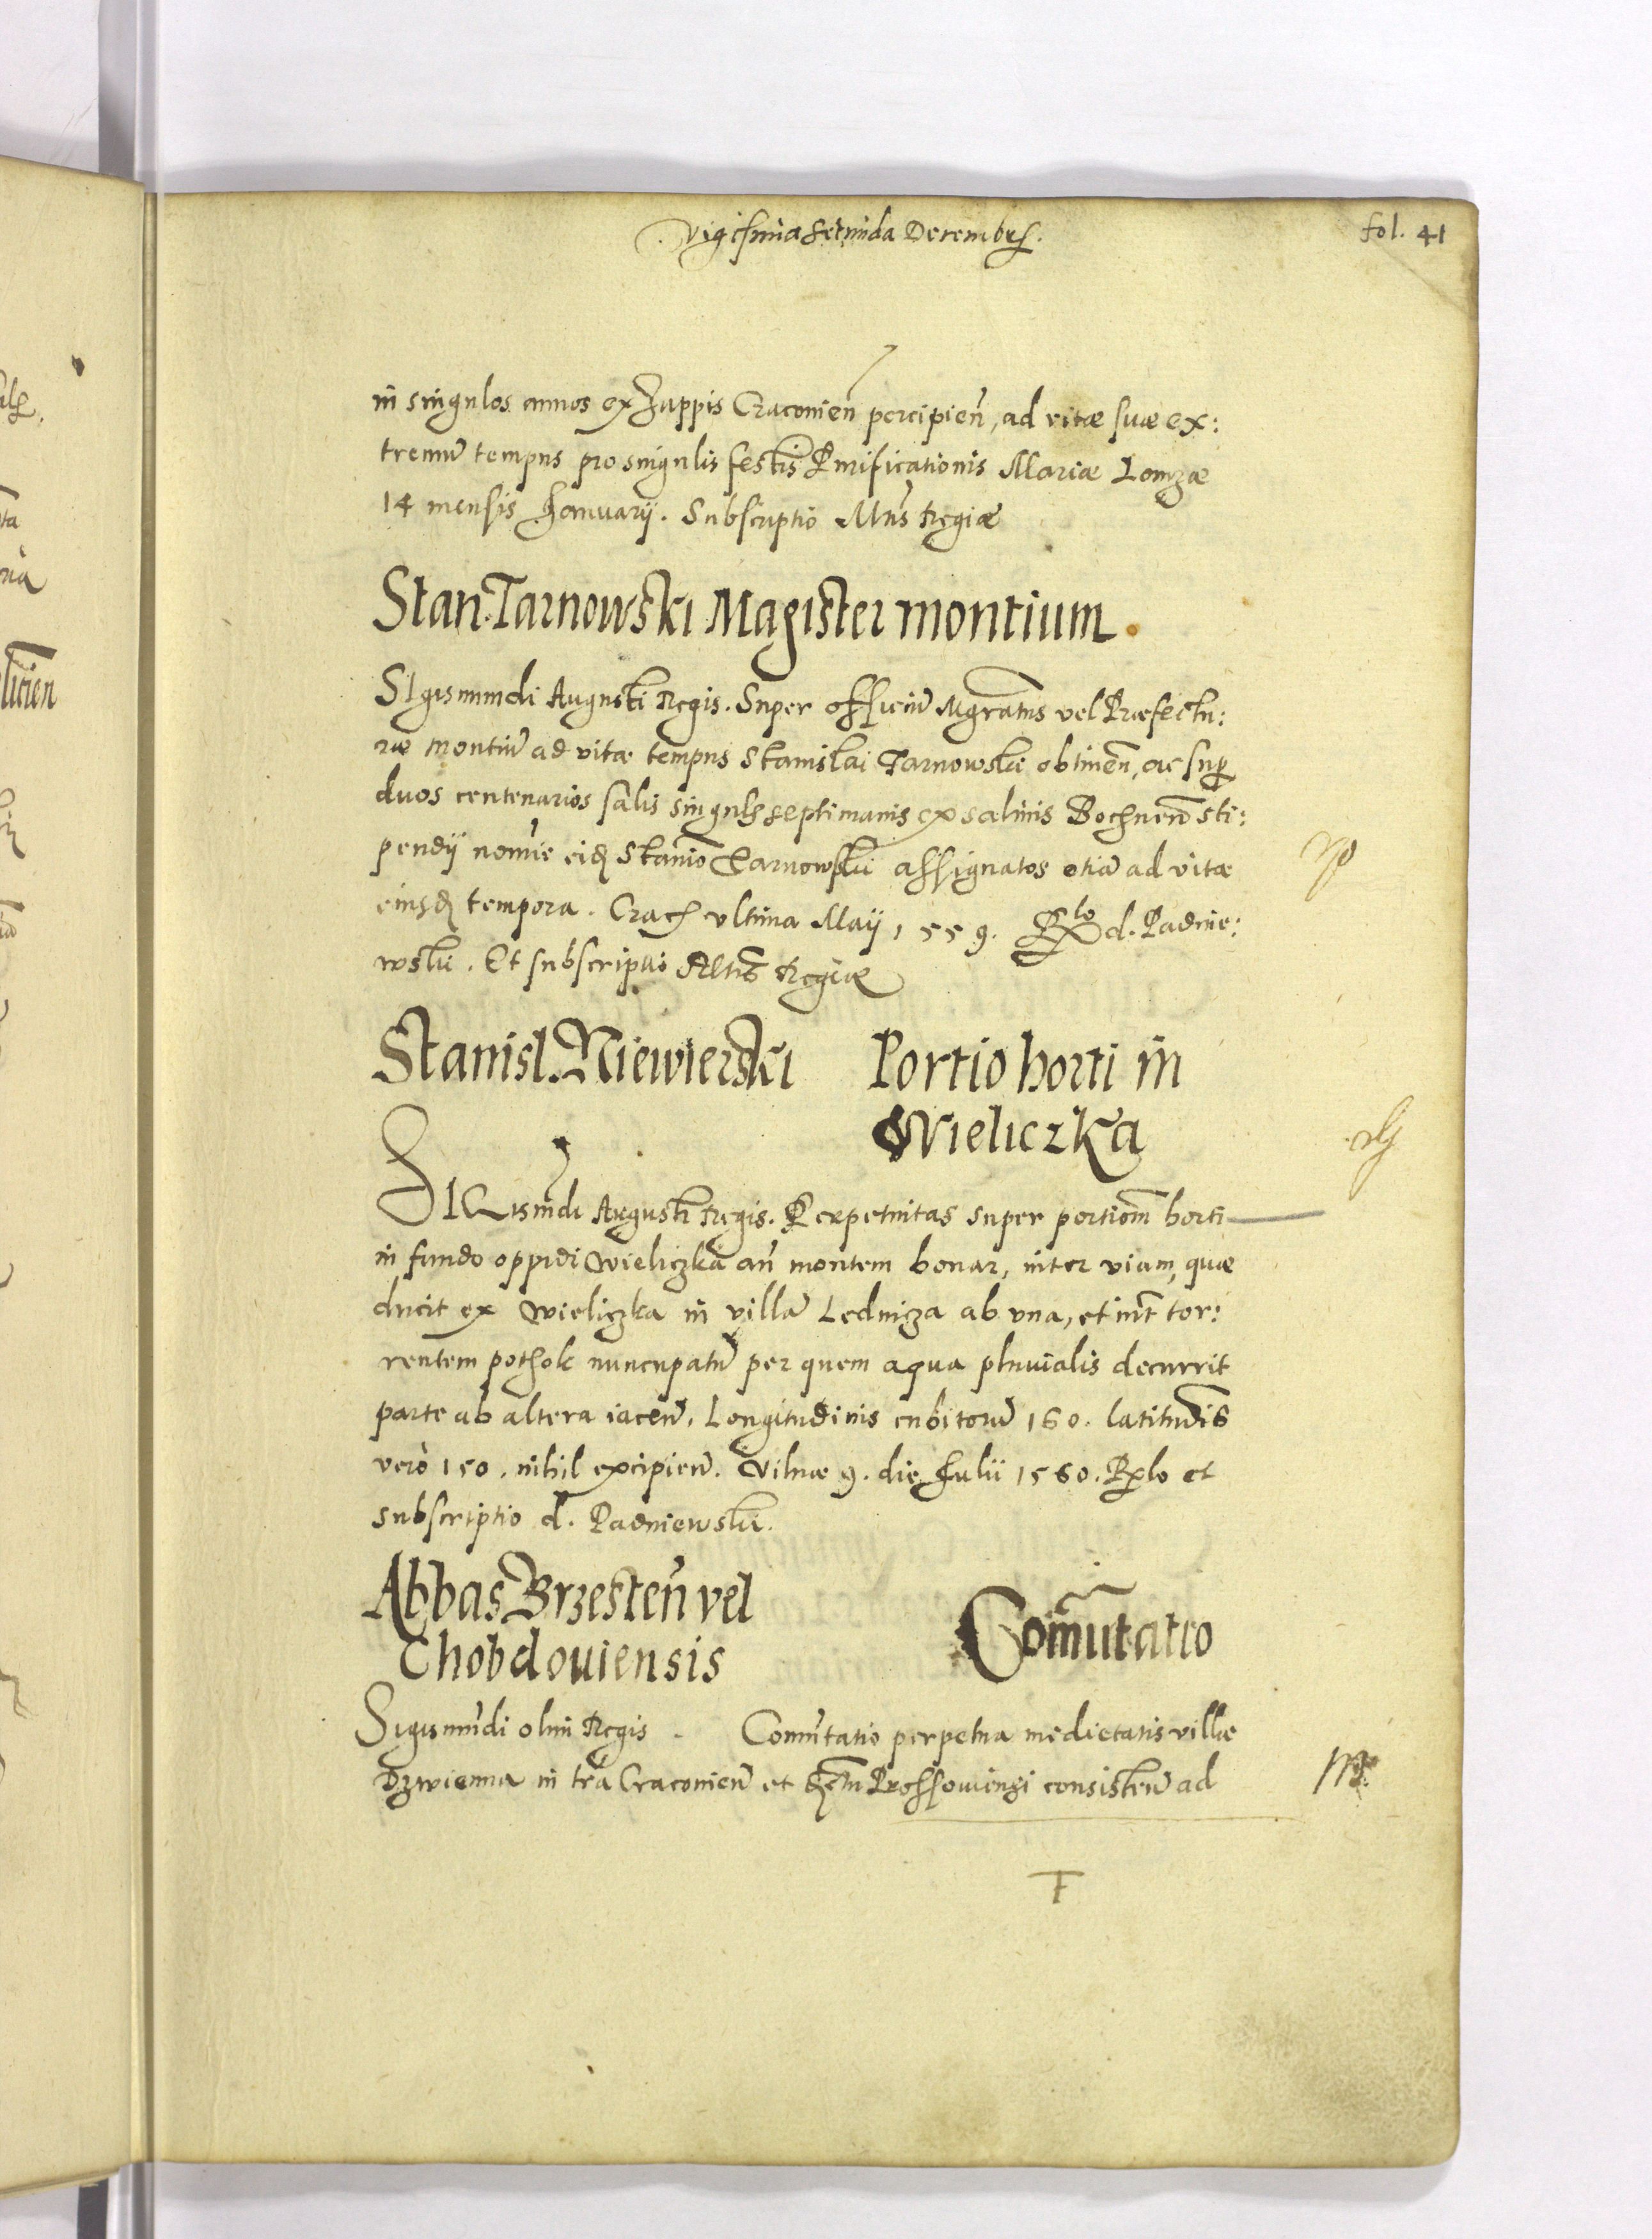 Vigesima secunda Decembris.
fol. 41
in singulos annos ex Zuppis Cracovien̄ percipien̄, ad vitae suae ex:
tremū tempus pro singulis festis Purificationis Mariae Lomzae
14 mensis Januarij. Subscriptio Mtis Regiae
Stan. Tarnowski Magister montium.
Sigismundi Augusti Regis. Super officiū Mgratus vel Praefectu:
rae montiū ad vitae tempus Stanislai Tarnowski obtinen̄, ac sup
duos centenarios salis singulis septimanis ex salinis Bochnen̄ sti:
pendij nomīe eid Stanīo Tarnowski assignatos etiā ad vitae
eiusd tempora. Crac ultima Maij 1559. Rlo d. Padnie:
wski. Et subscriptio Mtis Regiae
Stanisl. Niewierski
Portio horti in
Wieliczka
Sigismūdi Augusti Regis. Perpetuitas super portiom̄ horti
in fundo oppidi Wieliczka an̄ montem bonar, inter viam, quae
ducit ex Wieliczka in villā Lednicza ab una, et int̄ tor:
rentem pothok nuncupatū per quem aqua pluvialis decurrit
parte ab altera iacen̄. Longitudinis cubitorū 160. latitudīs
verò 150. nihil excipien̄. Vilnae 9. die Julii 1560. Rlo et
subscriptio d. Padniewski.
Abbas Brzesten̄ vel
Chobdouiensis
Com̄utatio
Sigismūdi olim Regis. Comūtatio perpetua medietatis villae
Dzwienna in tr̄a Cracovien̄ et Prossouiensi consisten̄ ad
F